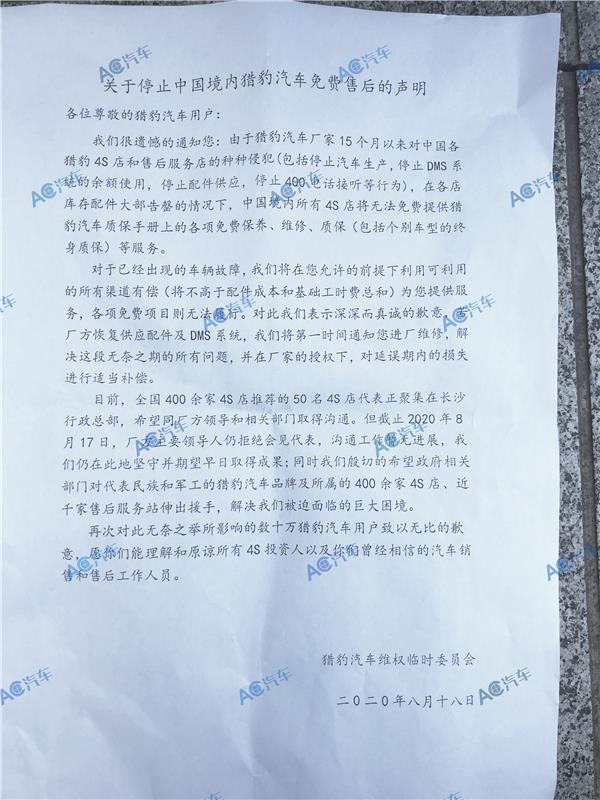 关于停止中国境内猎豹汽车免费售后的声明
各位尊敬的猎豹汽车用户：
我们很遗憾的通知您：由于猎豹汽车厂家 15 个月以来对中国各
猎豹 4S 店和售后服务店的种种侵犯(包括停止汽车生产，停止 DMS 系
统的余额使用，停止配件供应，停止 400 电话接听等行为)，在各店
库存配件大部告罄的情况下，中国境内所有 4S 店将无法免费提供猎
豹汽车质保手册上的各项免费保养、维修、质保（包括个别车型的终
身质保）等服务。
对于已经出现的车辆故障，我们将在您允许的前提下利用可利用
的所有渠道有偿（将不高于配件成本和基础工时费总和）为您提供服
务，各项免费项目则无法履行。对此我们表示深深而真诚的歉意，若
厂方恢复供应配件及 DMS 系统，我们将第一时间通知您进厂维修，解
决这段无奈之期的所有问题，并在厂家的授权下，对延误期内的损失
进行适当补偿。
目前，全国 400 余家 4S 店推荐的 50 名 4S 店代表正聚集在长沙
行政总部，希望同厂方领导和相关部门取得沟通。但截止 2020 年 8
月 17 日，厂方主要领导人仍拒绝会见代表，沟通工作暂无进展，我
们仍在此地坚守并期望早日取得成果；同时我们殷切的希望政府相关
部门对代表民族和军工的猎豹汽车品牌及所属的 400 余家 4S 店、近
千家售后服务站伸出援手，解决我们被迫面临的巨大困境。
再次对此无奈之举所影响的数十万猎豹汽车用户致以无比的歉
意，愿你们能理解和原谅所有 4S 投资人以及你们曾经相信的汽车销
售和售后工作人员。
猎豹汽车维权临时委员会
二〇二〇年八月十八日
AC汽车
AC汽车
AC汽车
AC汽车
AC汽车
AC汽车
AC汽车
AC汽车
AC汽车
AC汽车
AC汽车
AC汽车
AC汽车